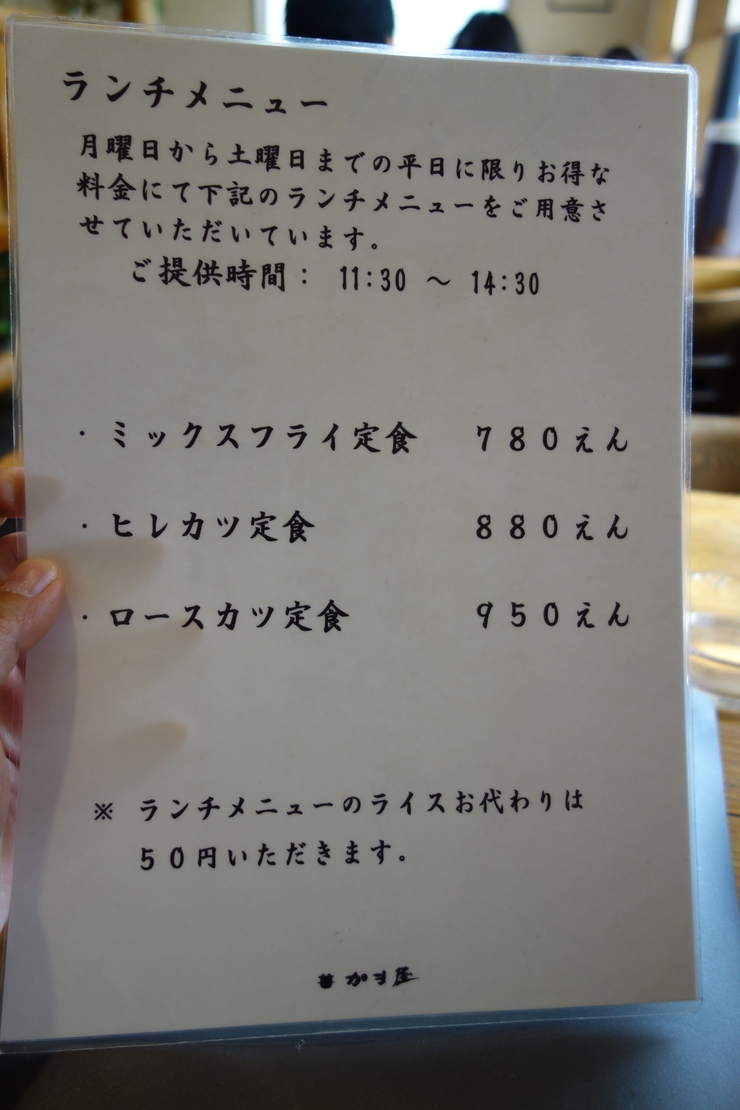 ランチメニュー
月曜日から土曜日までの平日に限りお得な
料金にて下記のランチメニューをご用意さ
せていただいています。
ご提供時間： 11:30 ～ 14:30
・ミックスフライ定食 ７８０えん
・ヒレカツ定食 ８８０えん
・ロースカツ定食 ９５０えん
※ ランチメニューのライスお代わりは
５０円いただきます。
かま屋